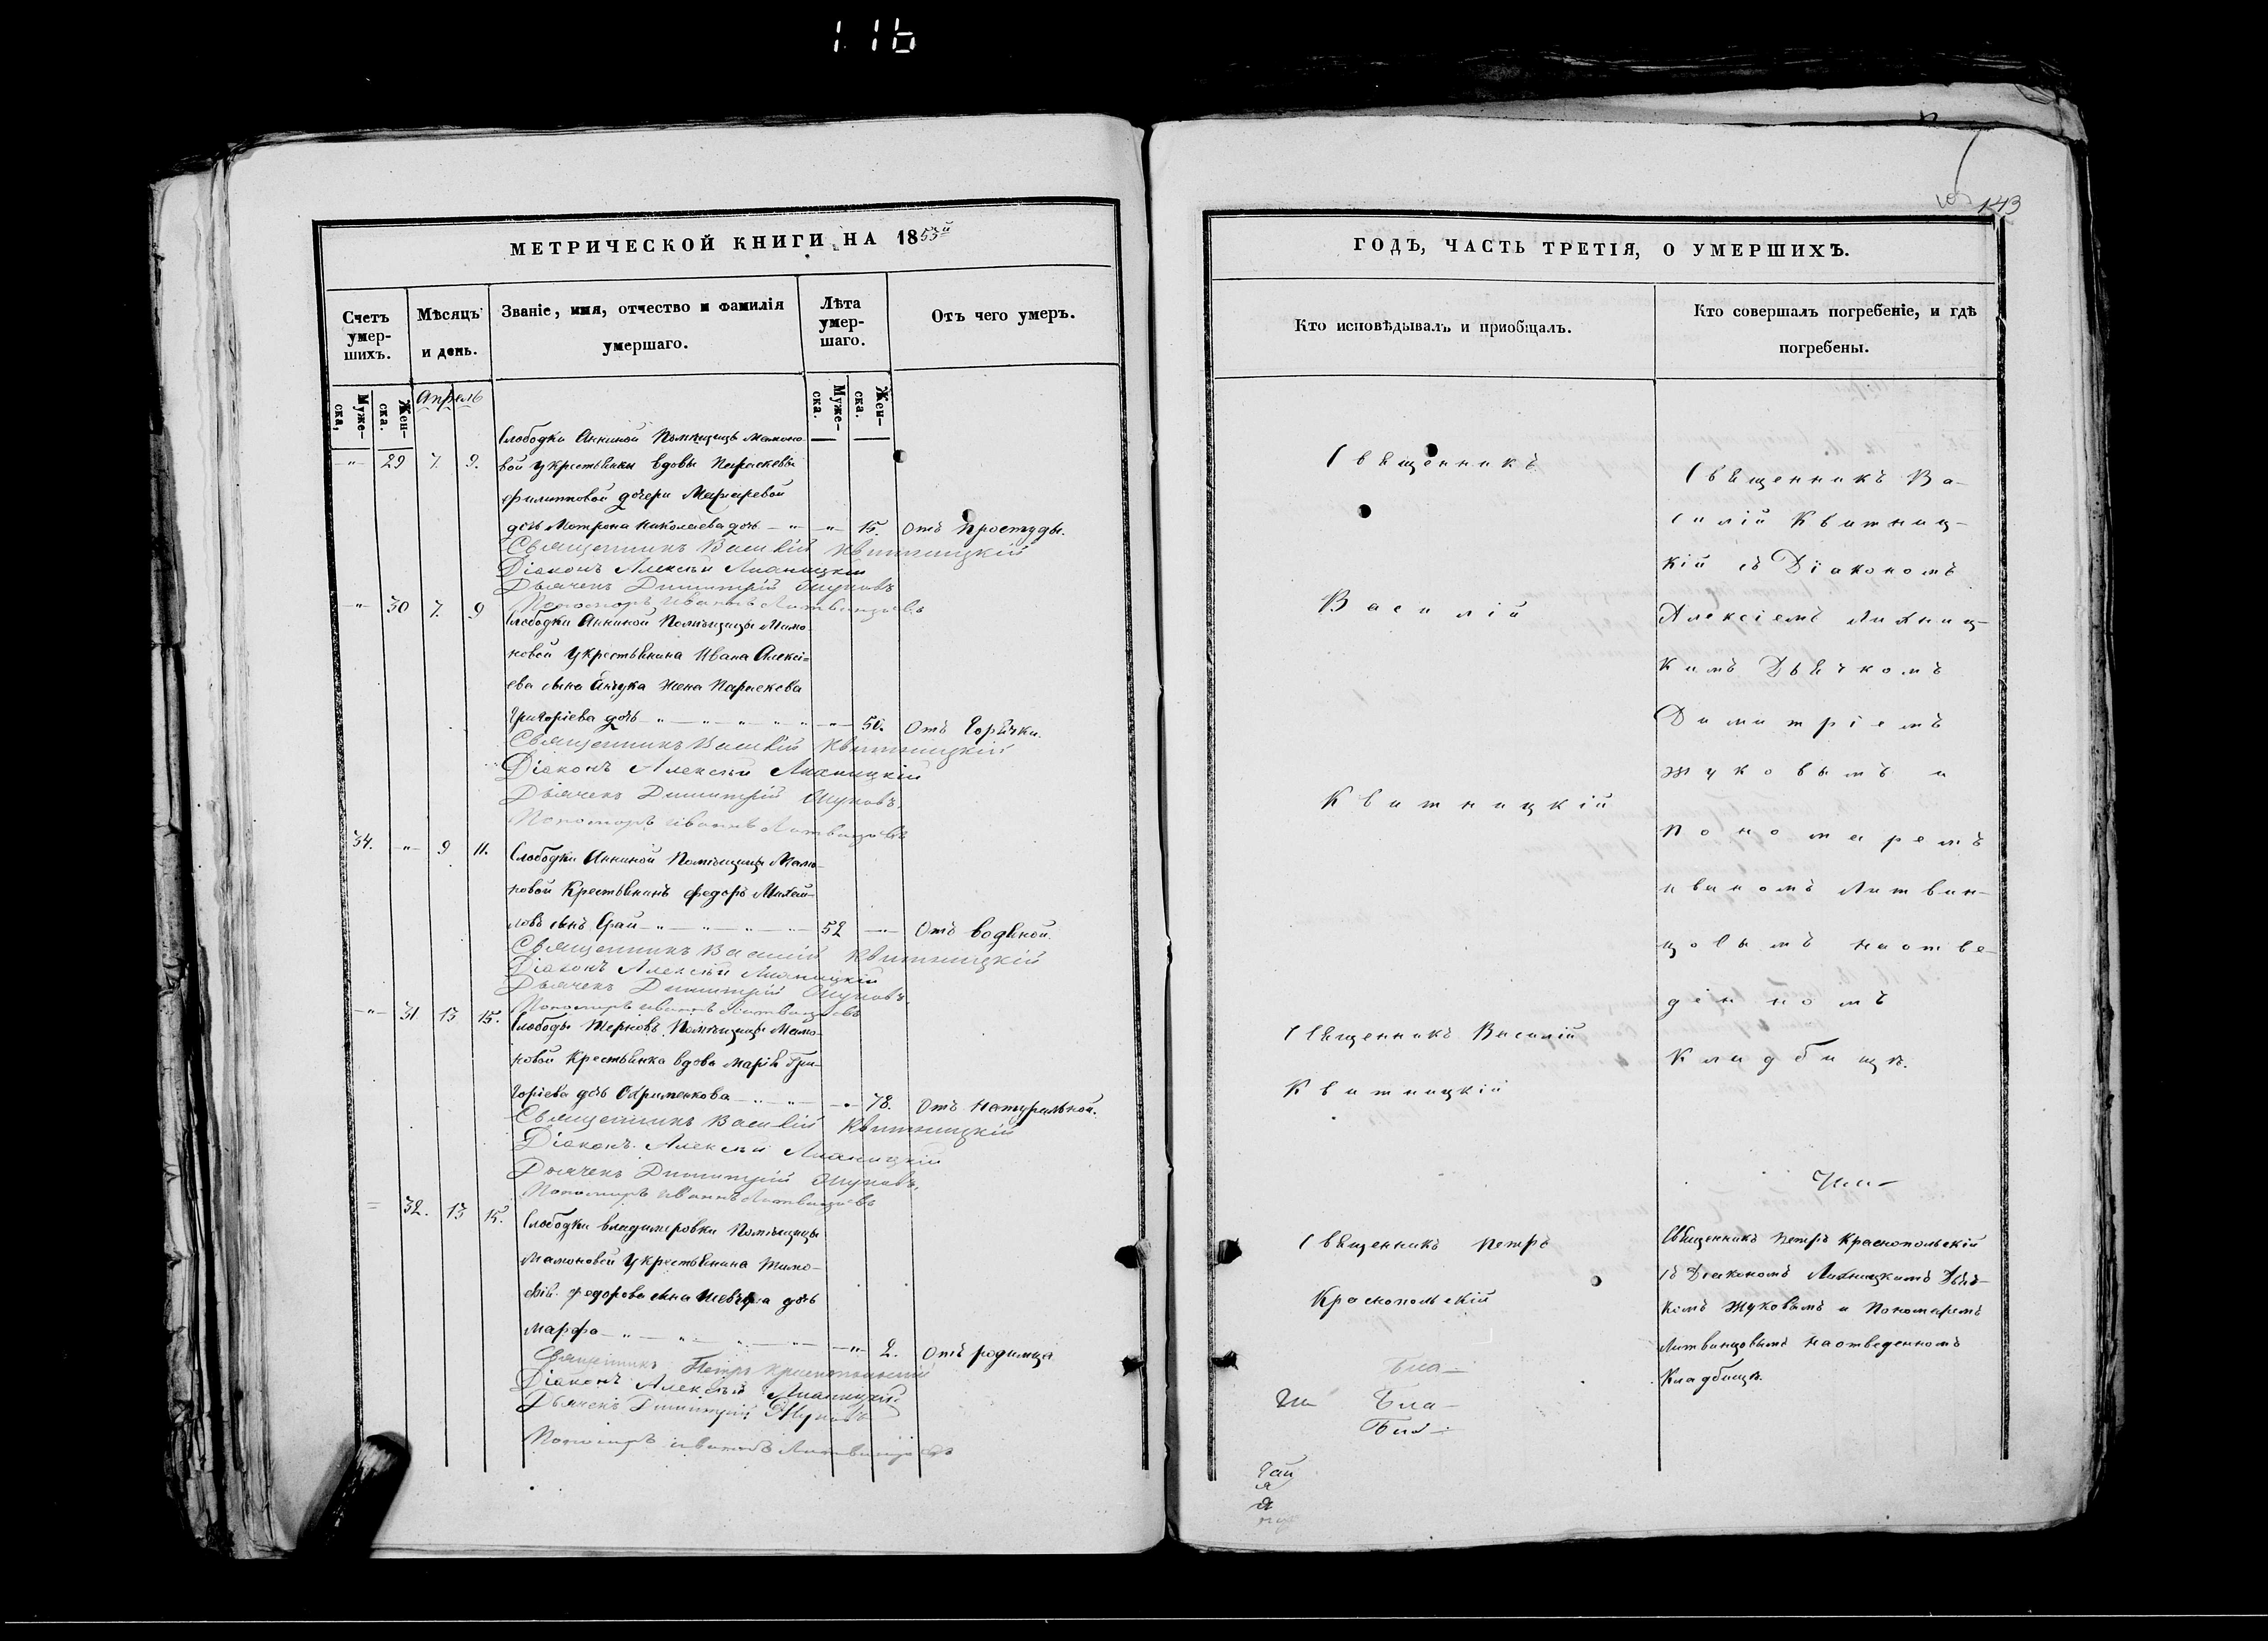 116
143
МЕТРИЧЕСКОЙ КНИГИ НА 1853й
Счетъ умер-шихъ.
Мѣсяцъ и день.
Званіе, имя, отчество и фамилія умершаго.
Лѣта умер-шаго.
Отъ чего умеръ.
Муже-ска,
Жен-ска.
Апрель
Муже-ска.
Жен-ска.
Слободки Анниной Помѣщицы Мамоно-
29 7. 9. вой у крестьянки вдовы Параскевы
Филипповой дочери
дочь Мотрона Николаева дочь 15. Отъ простуды.
Священникъ Василій Квитницкій
Діаконъ Алексѣй
Дьячекъ Димитрій Жуковъ
Пономарь Иванъ Литвинцовъ
30 7. 9 Слободки Анниной Помѣщицы Мамо-
новой у крестьянина Ивана Алексі-
ева сына жена Параскева
Григоріева дочь 50. Отъ горячки.
Священникъ Василій Квитницкій
Діаконъ Алексѣй
Дьячекъ Димитрій Жуковъ.
Пономарь Иванъ Литвинцовъ
34. 9 11. Слободки Анниной Помѣщицы Мамо-
новой Крестьянинъ Федоръ Михай-
ловъ сынъ 52 Отъ водяной.
Священникъ Василій Квитницкій
Діаконъ Алексѣй
Дьячекъ Димитрій Жуковъ.
Пономарь Иванъ Литвинцовъ
31 13 15. Слободы Терновъ Помѣщицы Мамо-
новой Крестьянка вдова Марія Гри-
горіева дочь Охрименкова 78. Отъ натуральной.
Священникъ Василій Квитницкій
Діаконъ Алексѣй
Дьячекъ Димитрій Жуковъ.
Пономарь Иванъ Литвинцовъ
32. 13 15. Слободки Владимировки Помѣщицы
Мамоновой у крестьянина Тимо-
фія Федорова сына дочь
Марфа 2. Отъ родимца
Священникъ Петръ Краснопольскій
Діаконъ Алексѣй
Дьячекъ Димитрій Жуковъ
Пономарь Иванъ Литвинцовъ
ГОДЪ, ЧАСТЬ ТРЕТІЯ, О УМЕРШИХЪ.
Кто исповѣдывалъ и приобщалъ.
Кто совершалъ погребеніе, и гдѣ погребены.
Священникъ
Василій
Квитницкій
Священникъ Василій
Квитницкій
Священникъ Петръ
Краснопольскій
Священникъ Ва-
силій Квитниц-
кій съ Діакономъ
Алексіемъ
кимъ Дьячкомъ
Димитріемъ
Жуковымъ и
пономаремъ
Иваномъ Литвин-
цовымъ на отве-
денномъ
Кладбищѣ.
Священникъ Петръ Краснопольскій
съ Діакономъ Дьяч-
комъ Жуковымъ и Пономаремъ
Литвинцовымъ на отведенномъ
Кладбищѣ.